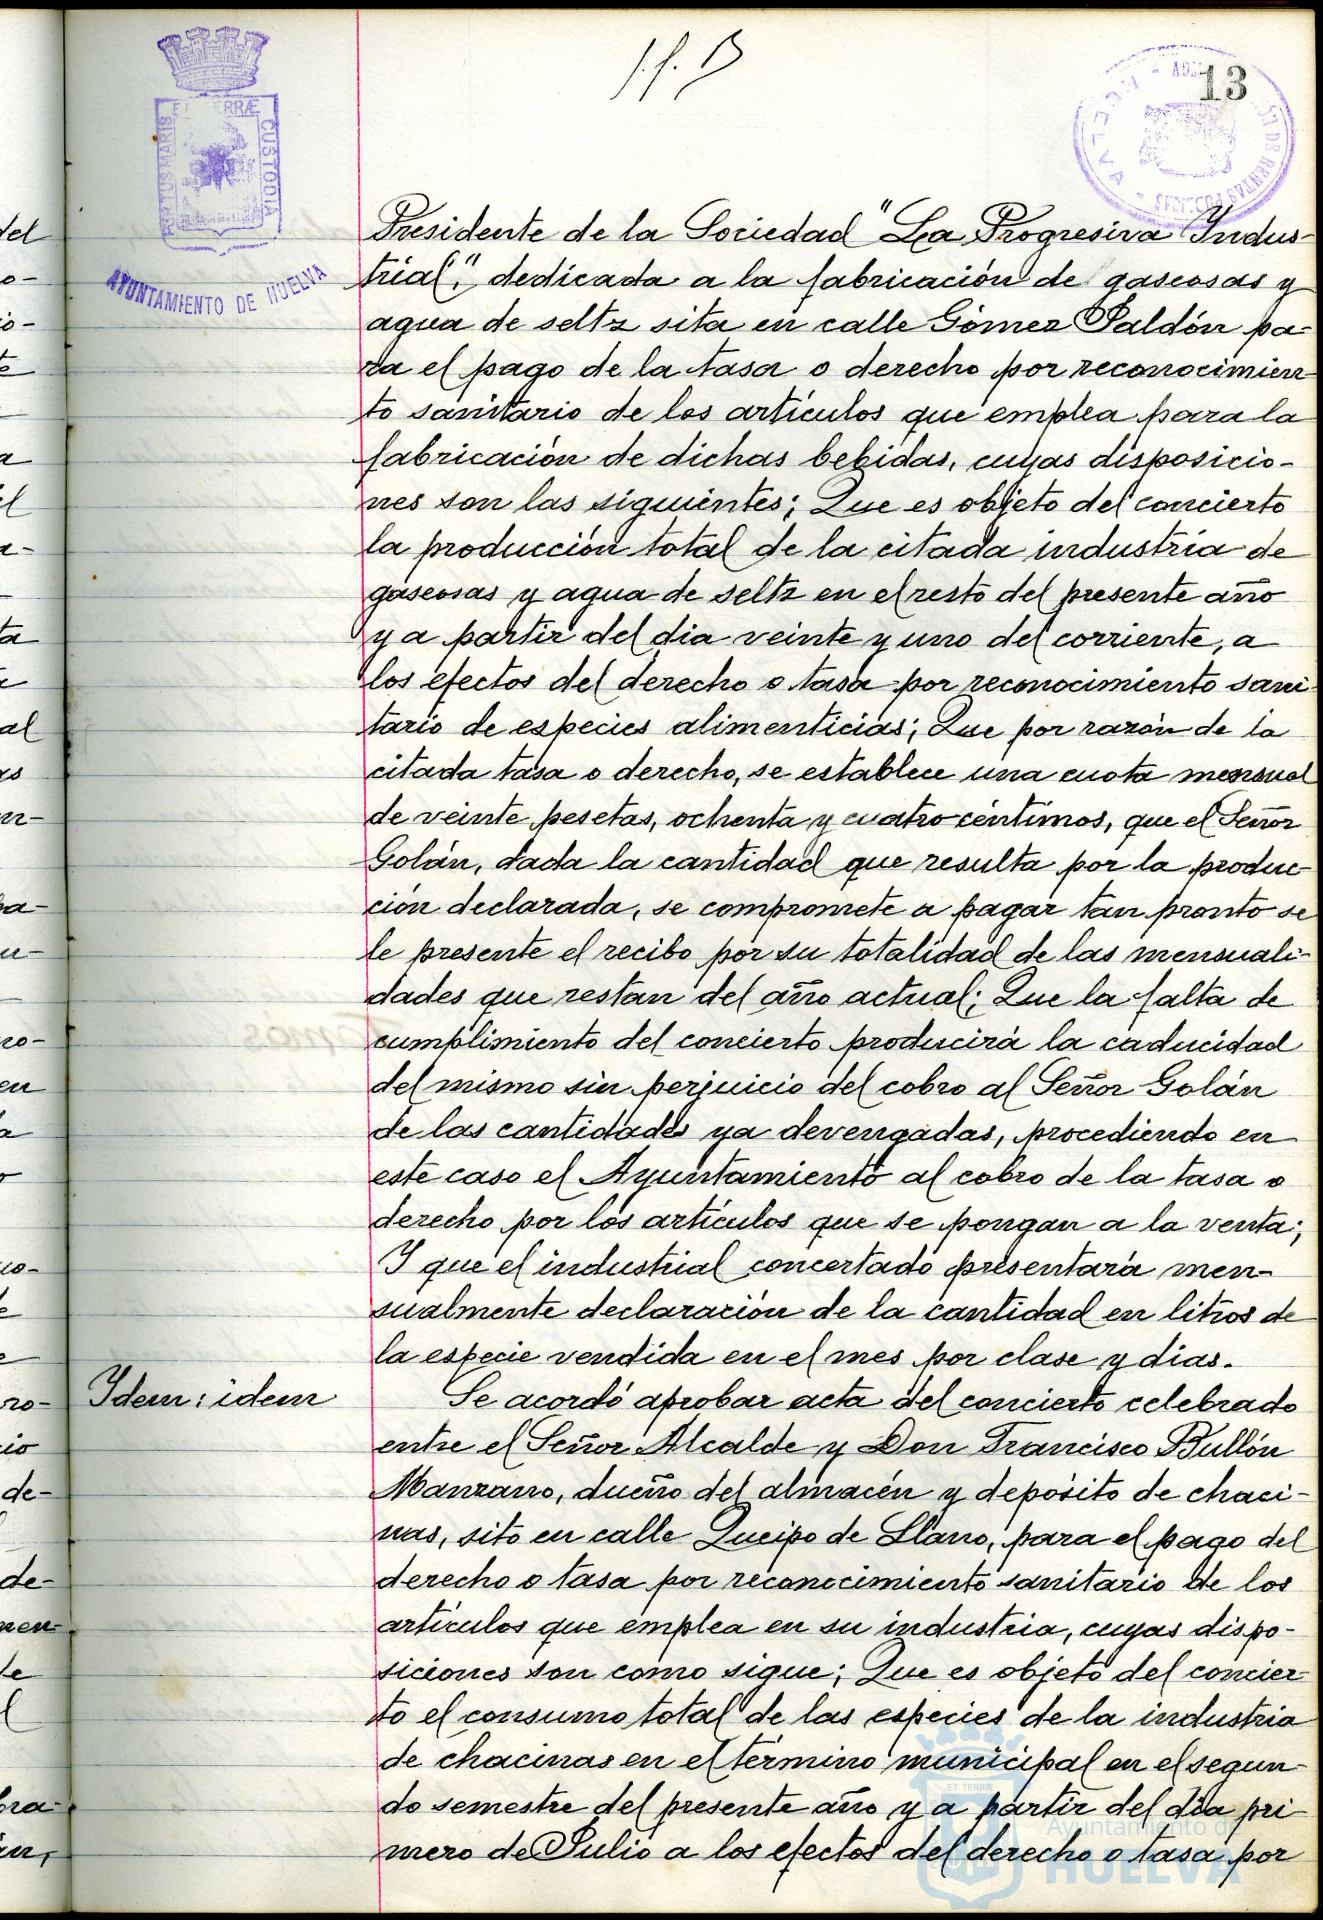 13
PORTUS MARIS ET TERRÆ CUSTODIA
AYUNTAMIENTO DE HUELVA
Presidente de la Sociedad "La Progresiva Indus-
trial", dedicada a la fabricación de gaseosas y
agua de seltz sita en calle Gómez Jaldón pa-
ra el pago de la tasa o derecho por reconocimien-
to sanitario de los artículos que emplea para la
fabricación de dichas bebidas, cuyas disposicio-
nes son las siguientes; Que es objeto del concierto
la producción total de la citada industria de
gaseosas y agua de seltz en el resto del presente año
y a partir del dia veinte y uno del corriente, a
los efectos del derecho o tasa por reconocimiento sani-
tario de especies alimenticias; Que por razón de la
citada tasa o derecho, se establece una cuota mensual
de veinte pesetas, ochenta y cuatro céntimos, que el Señor
Golán, dada la cantidad que resulta por la produc-
ción declarada, se compromete a pagar tan pronto se
le presente el recibo por su totalidad de las mensuali-
dades que restan del año actual; Que la falta de
cumplimiento del concierto producirá la caducidad
del mismo sin perjuicio del cobro al Señor Golán
de las cantidades ya devengadas, procediendo en
este caso el Ayuntamiento al cobro de la tasa o
derecho por los artículos que se pongan a la venta;
Y que el industrial concertado presentará men-
sualmente declaración de la cantidad en litros de
la especie vendida en el mes por clase y dias.
Idem: idem
Se acordó aprobar acta del concierto celebrado
entre el Señor Alcalde y Don Francisco Bullón
Manzano, dueño del almacén y depósito de chaci-
nas, sito en calle Queipo de Llano, para el pago del
derecho o tasa por reconocimiento sanitario de los
artículos que emplea en su industria, cuyas dispo-
siciones son como sigue; Que es objeto del concier-
to el consumo total de las especies de la industria
de chacinas en el término municipal en el segun-
do semestre del presente año y a partir del dia pri-
mero de Julio a los efectos del derecho o tasa por
Ayuntamiento de
HUELVA